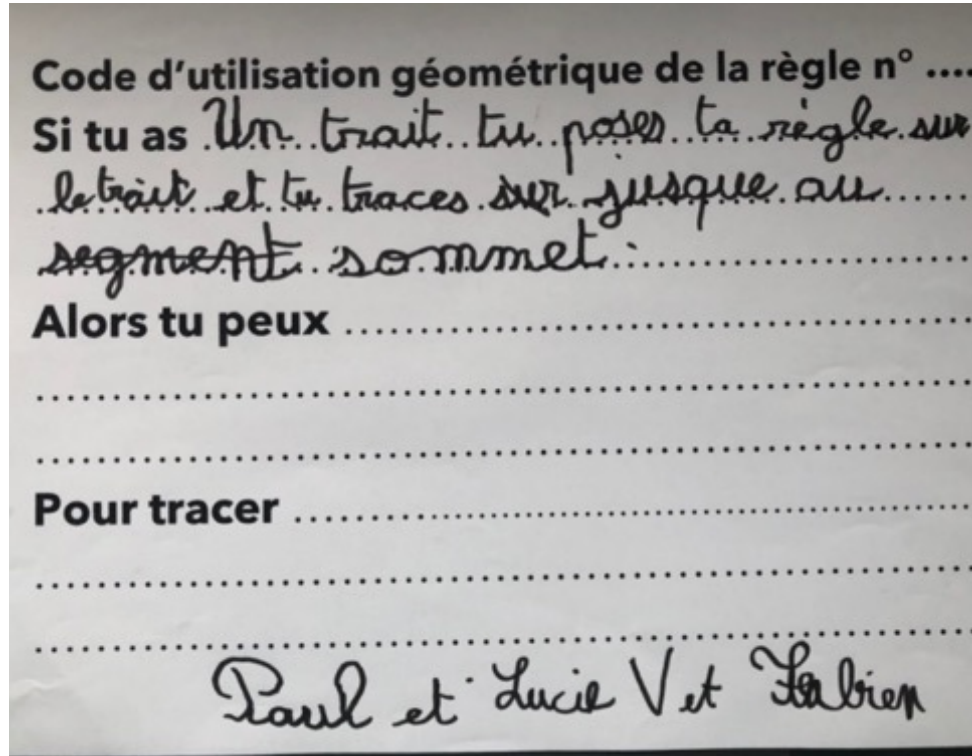 Code d'utilisation géométrique de la règle n° ....
Si tu as Un trait tu poses ta règle sur
le trait et tu traces sur jusque au
segment sommet.
Alors tu peux ....................
....................
....................
Pour tracer ....................
....................
....................
Paul et Lucie V et Fabien